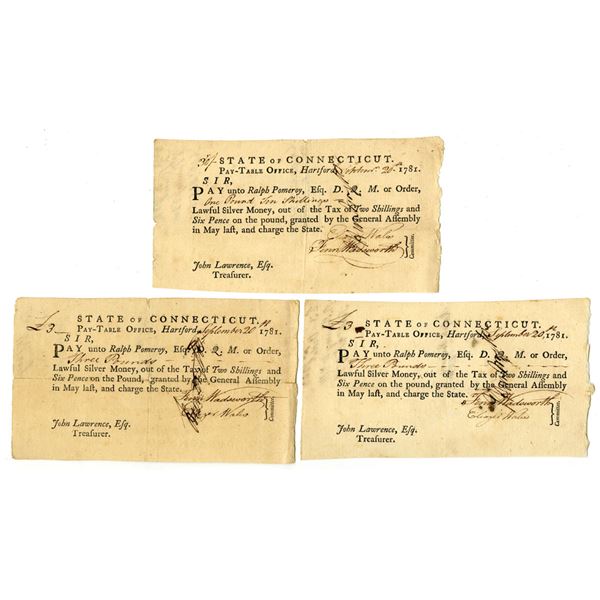 30/- STATE OF CONNECTICUT.
PAY-TABLE OFFICE, Hartford, Septem. 20th 1781.
SIR,
PAY unto Ralph Pomeroy, Esq. D. Q. M. or Order,
One Pound Ten Shillings
Lawful Silver Money, out of the Tax of Two Shillings and
Six Pence on the pound, granted by the General Assembly
in May last, and charge the State.
Wales
Fenn Wadsworth
Committee.
John Lawrence, Esq.
Treasurer.
£3 STATE OF CONNECTICUT.
PAY-TABLE OFFICE, Hartford, September 20th 1781.
SIR,
PAY unto Ralph Pomeroy, Esq. D. Q. M. or Order,
Three Pounds
Lawful Silver Money, out of the Tax of Two Shillings and
Six Pence on the Pound, granted by the General Assembly
in May last, and charge the State.
Fenn Wadsworth
Wales
Committee.
John Lawrence, Esq.
Treasurer.
£3 STATE OF CONNECTICUT.
PAY-TABLE OFFICE, Hartford, September 20th 1781.
SIR,
PAY unto Ralph Pomeroy, Esq. D. Q. M. or Order,
Three Pounds
Lawful Silver Money, out of the Tax of Two Shillings and
Six Pence on the Pound, granted by the General Assembly
in May last, and charge the State.
Fenn Wadsworth
Wales
Committee.
John Lawrence, Esq.
Treasurer.